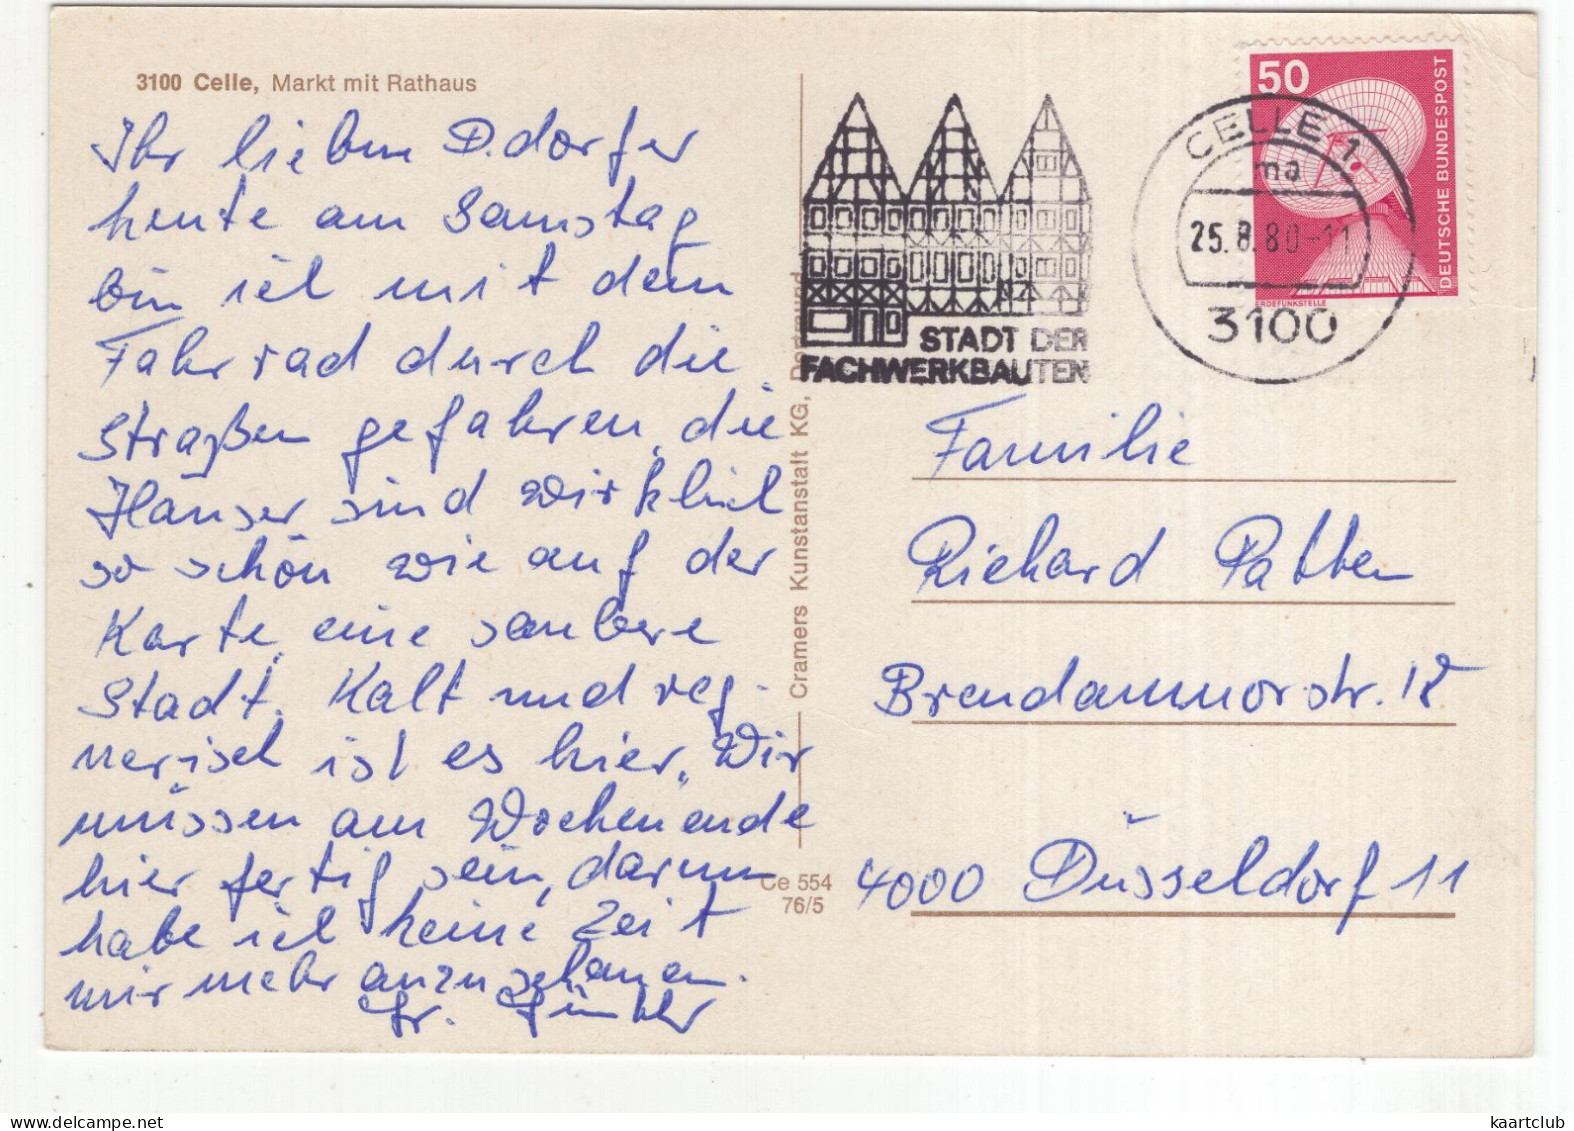 3100 Celle, Markt mit Rathaus
Ihr lieben D.dorfer
heute am Samstag
bin ich mit dem
Fahrrad durch die
Straßen gefahren, die
Häuser sind wirklich
so schön wie auf der
Karte, eine saubere
Stadt. Kalt und reg-
nerisch ist es hier. Wir
müssen am Wochenende
hier fertig sein, darum
habe ich keine Zeit
mir mehr anzuschauen.
Gr. Günther
Cramers Kunstanstalt KG, Dortmund
Ce 554
76/5
STADT DER
FACHWERKBAUTEN
CELLE 1
ma
25.8.80-11
3100
50
DEUTSCHE BUNDESPOST
ERDEFUNKSTELLE
Familie
Richard Patten
Brendamourstr. 18
4000 Düsseldorf 11
kaartclub